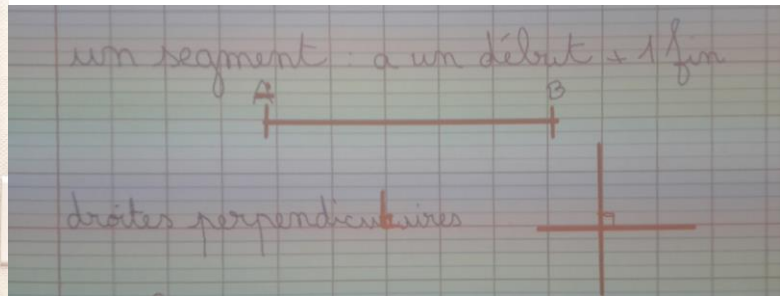 un segment : a un début + 1 fin
A B
droites perpendiculaires